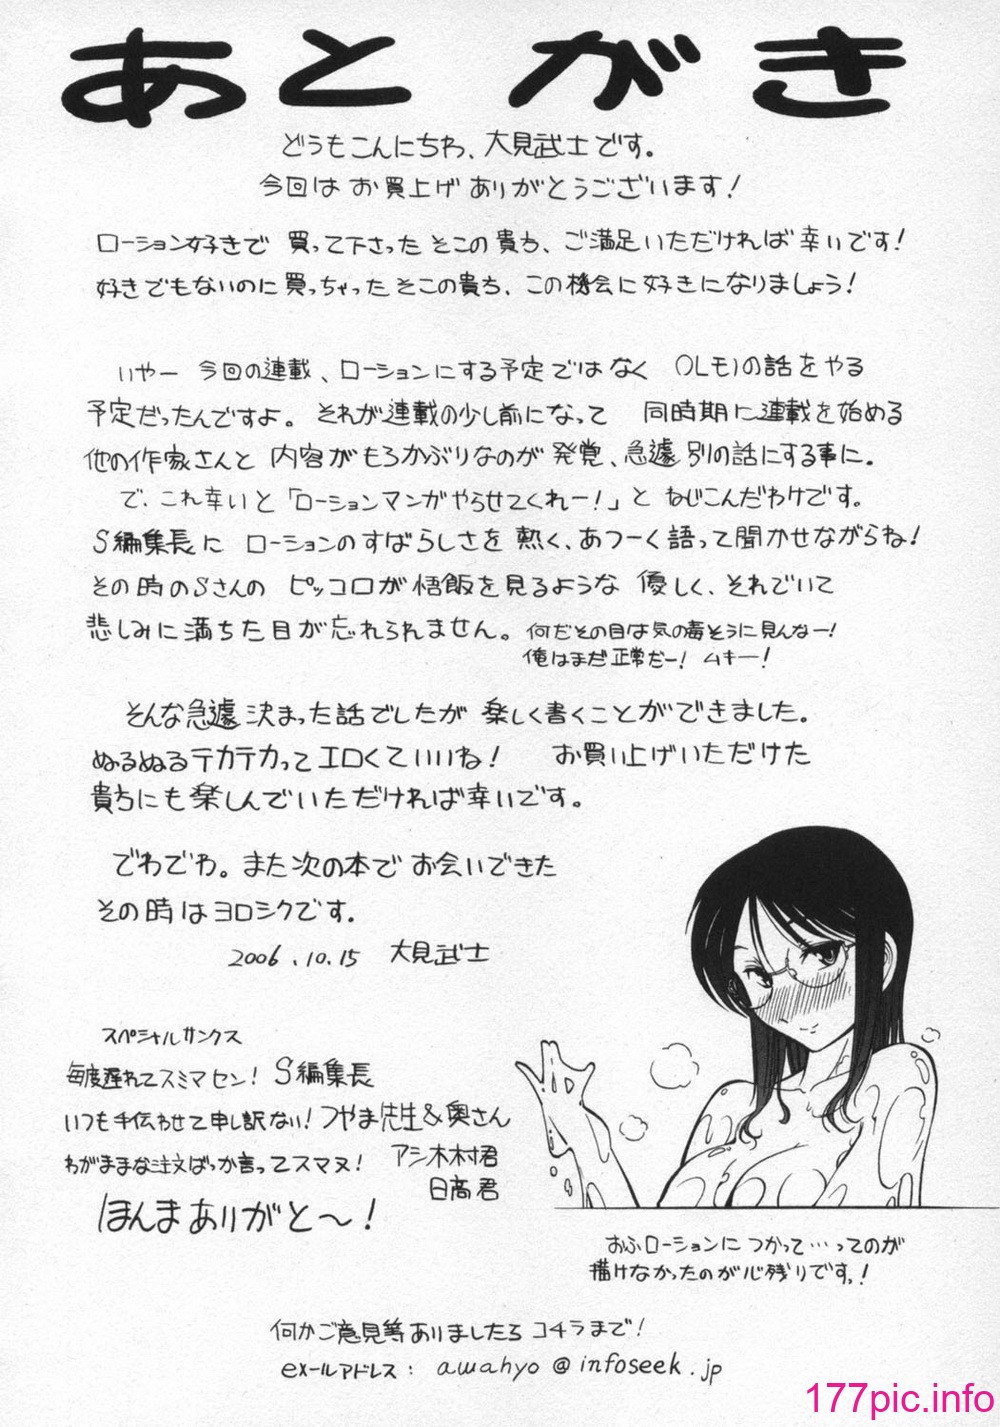 あとがき
どうもこんにちわ、大見武士です。
今回は お買上げ ありがとうございます!
ローション好きで 買って下さった そこの貴方、ご満足いただければ幸いです!
好きでもないのに買っちゃったそこの貴方、この機会に好きになりましょう!
いやー 今回の連載、ローションにする予定ではなく OLモノの話をやる
予定だったんですよ。それが連載の少し前になって 同時期に連載を始める
他の作家さんと 内容がもろかぶりなのが発覚、急遽別の話にする事に。
で、これ幸いと「ローションマンガやらせてくれー!」と ねじこんだわけです。
S編集長に ローションのすばらしさを 熱く、あつーく語って聞かせながらね!
その時のSさんの ピッコロが悟飯を見るような 優しく、それでいて
悲しみに満ちた目が忘れられません。何だその目は気の毒そうに見んなー!
俺はまだ正常だー! ムキー!
そんな急遽決まった話でしたが 楽しく書くことができました。
ぬるぬるテカテカってエロくていいね! お買い上げいただけた
貴方にも楽しんでいただければ幸いです。
でわでわ。また次の本で お会いできた
その時はヨロシクです。
2006.10.15 大見武士
スペシャルサンクス
毎度遅れてスミマセン! S編集長
いつも手伝わせて申し訳ない! つやま先生&奥さん
わがままな注文ばっか言ってスマヌ! アシ木村君
日高君
ほんまありがと〜!
おふローションに つかって…ってのが
描けなかったのが心残りですっ!
何かご意見等ありましたら コチラまで!
eメールアドレス: awahyo@infoseek.jp
177pic.info